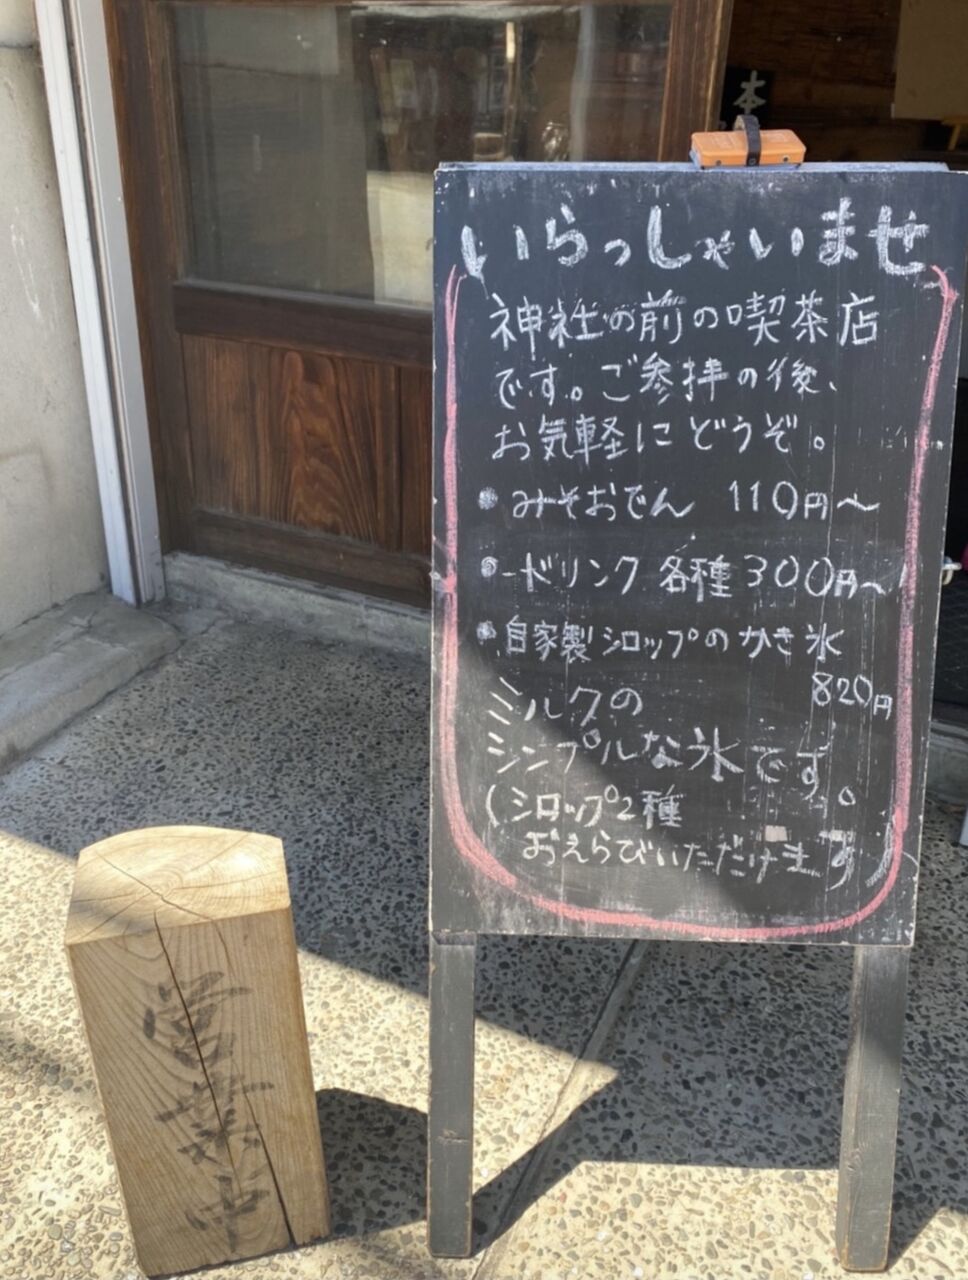 本
いらっしゃいませ
神社の前の喫茶店
です。ご参拝の後、
お気軽にどうぞ。
・みそおでん 110円〜
・ドリンク 各種300円〜
・自家製シロップのかき氷
820円
ミルクの
シンプルな氷です。
(シロップ2種
おえらびいただけます
営業中